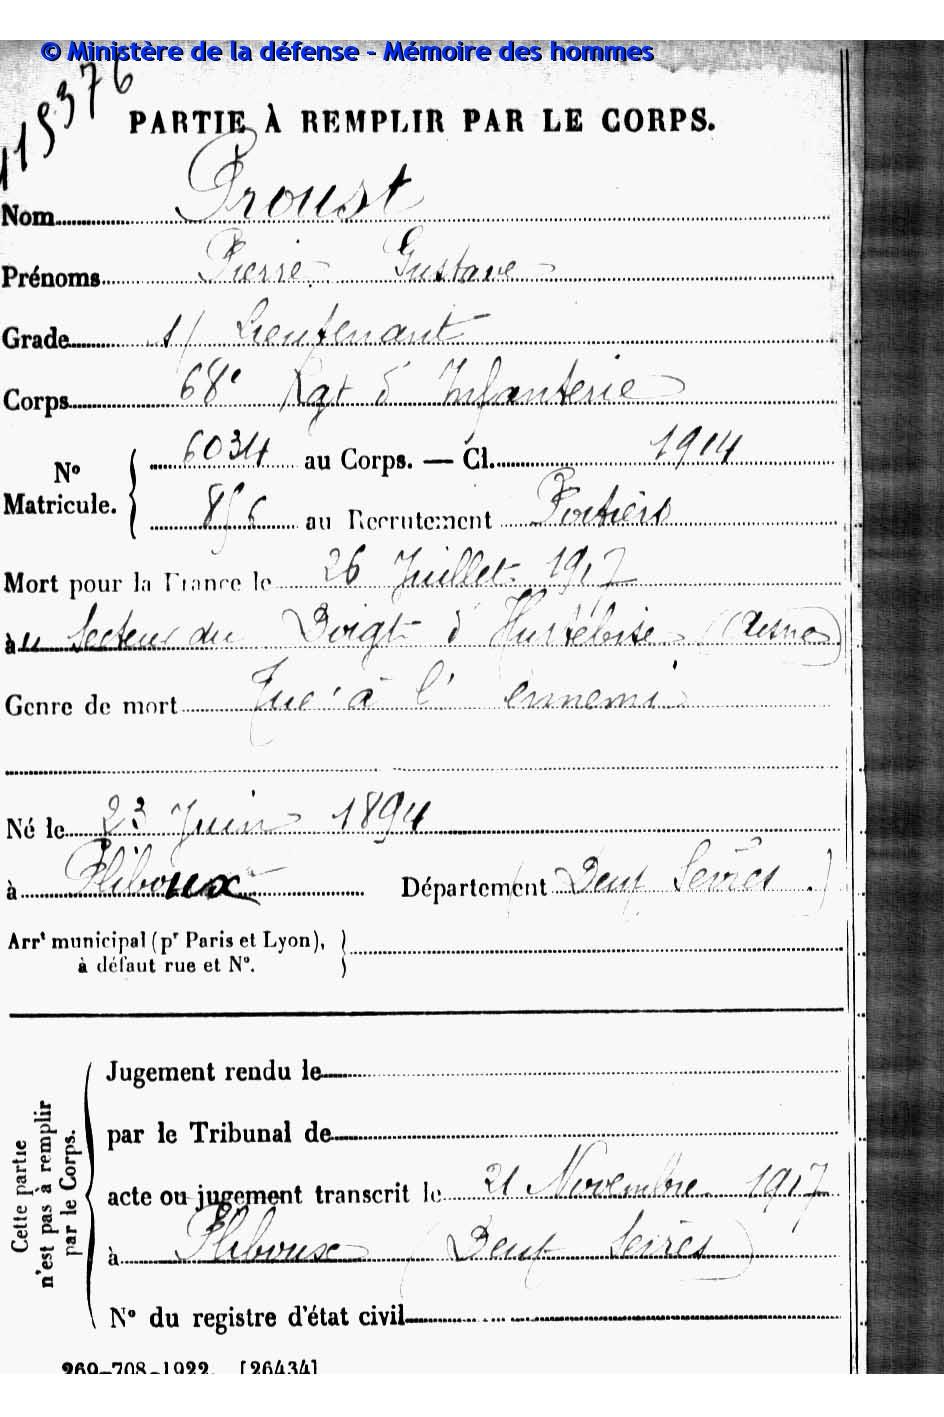 © Ministère de la défense - Mémoire des hommes
115376
PARTIE À REMPLIR PAR LE CORPS.
Nom Proust
Prénoms Pierre Gustave
Grade s/ Lieutenant
Corps 68e Rgt d'Infanterie
N° Matricule.
6034 au Corps. — Cl. 1914
856 au Recrutement Poitiers
Mort pour la France le 26 Juillet 1917
au Secteur du Doigt d'Hurtebise (Aisne)
Genre de mort Tué à l'ennemi
Né le 23 Juin 1894
à Pliboux Département (Deux Sèvres.)
Arrt municipal (pr Paris et Lyon),
à défaut rue et N°.
Cette partie
n'est pas à remplir
par le Corps.
Jugement rendu le
par le Tribunal de
acte ou jugement transcrit le 21 Novembre 1917
à Pliboux (Deux Sèvres)
N° du registre d'état civil
269-708-1922. [26434]